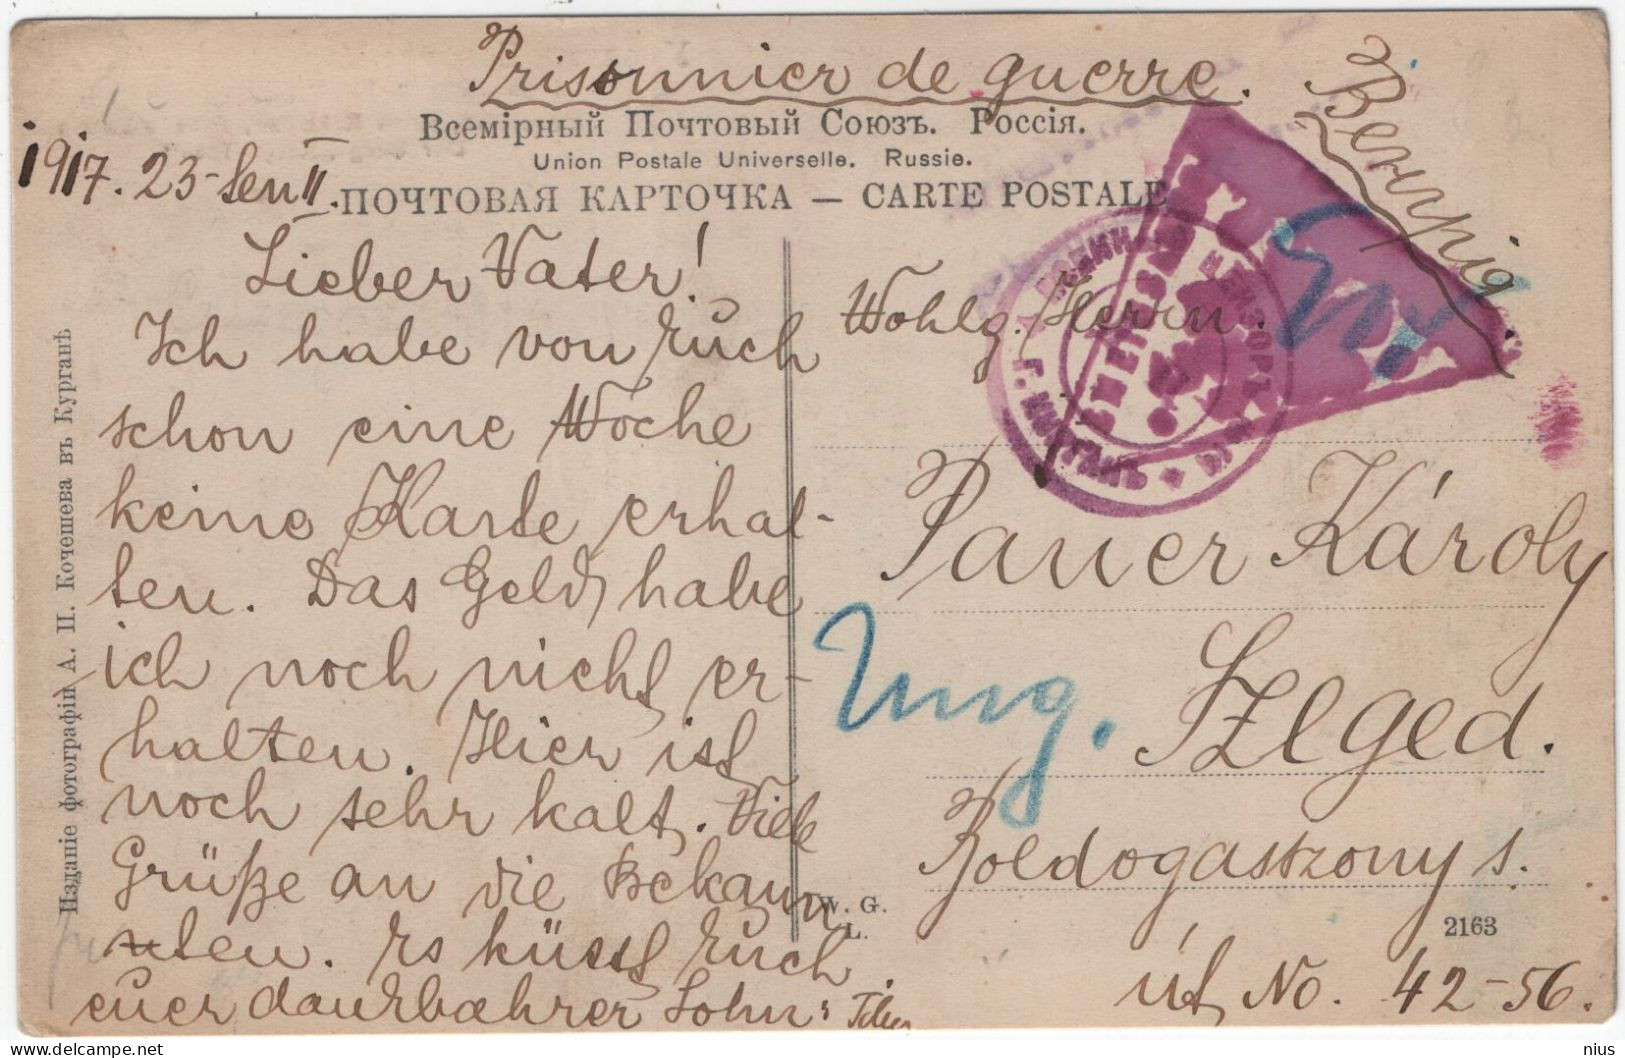 Prisonnier de guerre.
Венгрія
Всемірный Почтовый Союзъ. Россія.
Union Postale Universelle. Russie.
1917. 23-ten II.
ПОЧТОВАЯ КАРТОЧКА — CARTE POSTALE
Lieber Vater!
Ich habe von Euch
schon eine Woche
keine Karte erhal-
ten. Das Geld habe
ich noch nicht er-
halten. Hier ist
noch sehr kalt. Viele
Grüße an die Bekann
ten. Es küsst Euch
euer dankbahrer Sohn:
Wohlg. Herrn.
Pauer Károly
Ung.
Szeged.
Boldogasszony s.
út No. 42-56.
W. G.
L.
2163
Изданіе фотографіи А. П. Кочешева въ Курганѣ
nius
delcampe.net